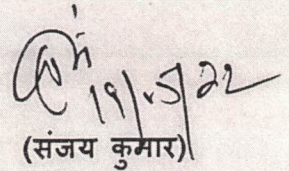 19/5/22
(संजय कुमार)